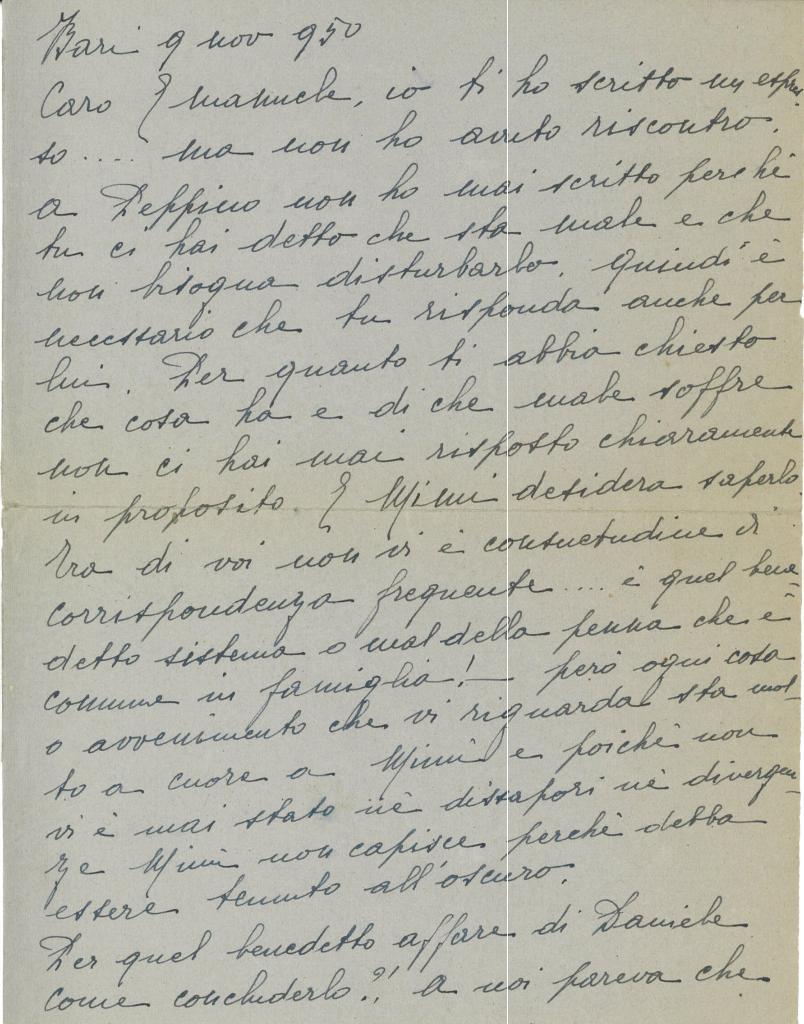 Bari 9 nov 950
Caro Emanuele, io ti ho scritto un espres
so .... ma non ho avuto riscontro.
a Peppino non ho mai scritto perchè
tu ci hai detto che sta male e che
non bisogna disturbarlo. Quindi è
necessario che tu risponda anche per
lui. Per quanto ti abbia chiesto
che cosa ha e di che male soffre
non ci hai mai risposto chiaramente
in proposito. E Mimì desidera saperlo.
Tra di voi non vi è consuetudine di
corrispondenza frequente .... è quel bene-
detto sistema o mal della penna che è
comune in famiglia! — però ogni cosa
o avvenimento che vi riguarda sta mol-
to a cuore a Mimì e poichè non
vi è mai stato nè dissapori nè divergen-
ze Mimì non capisce perchè debba
essere tenuto all'oscuro.
Per quel benedetto affare di Daniele
come concluderlo?! a noi pareva che